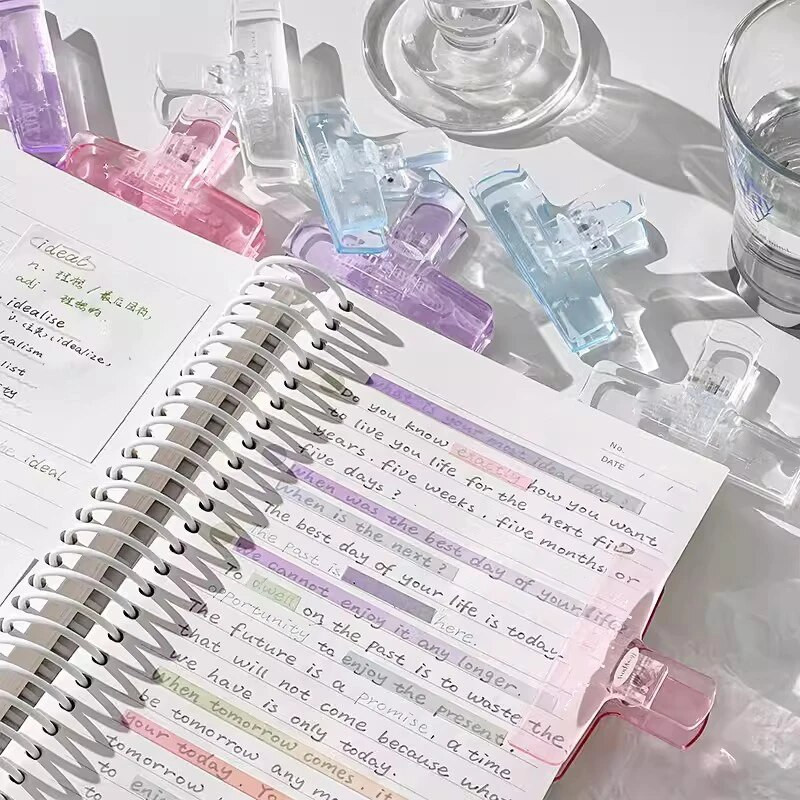 ideal
n: 理想
adj: 理想的
idealise
idealize,
dealism
list
ty
the ideal
No.
DATE / /
What is your most ideal day?
Do you know exactly how you want
to live you life for the next five
years. five weeks. five months or
five days?
When was the best day of your life?
When is the next?
The best day of your life is today.
The past is here.
We cannot enjoy it any longer.
To dwell on the past is to waste the
opportunity to enjoy the present.
The future is a promise, a time
that will not come because what
we have is only today.
When tomorrow comes. it
be tomorrow any mo
your today. Yo
tomorrow
to enjo
to